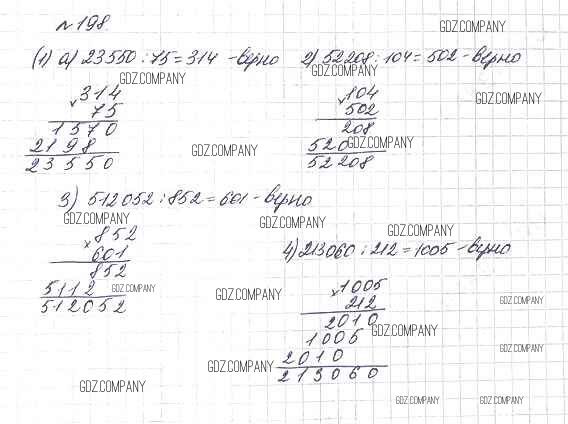 №198.
GDZ.COMPANY
(1) а) 23550:75=314 - верно
2) 52208:104=502 - верно
GDZ.COMPANY
GDZ.COMPANY
× 314
75
1570
2198
23550
GDZ.COMPANY
× 104
502
208
520
52208
GDZ.COMPANY
GDZ.COMPANY
3) 512052:852=601 - верно
GDZ.COMPANY
GDZ.COMPANY
GDZ.COMPANY
× 852
601
852
5112
512052
GDZ.COMPANY
4) 213060:212=1005 - верно
GDZ.COMPANY
× 1005
212
2010
1005
2010
213060
GDZ.COMPANY
GDZ.COMPANY
GDZ.COMPANY
GDZ.COMPANY
GDZ.COMPANY
GDZ.COMPANY
GDZ.COMPANY